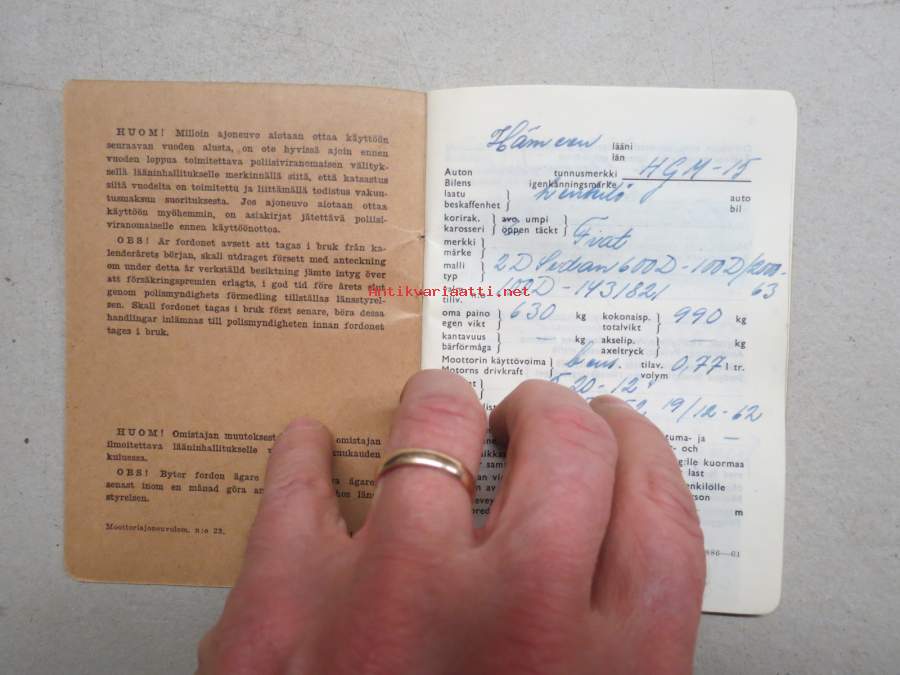 HUOM! Milloin ajoneuvo aiotaan ottaa käyttöön
seuraavan vuoden alusta, on ote hyvissä ajoin ennen
vuoden loppua toimitettava poliisiviranomaisen välityk-
sellä lääninhallitukselle merkinnällä siitä, että katsastus
siitä vuodelta on toimitettu ja liittämällä todistus vakuu-
tusmaksun suorituksesta. Jos ajoneuvo aiotaan ottaa
käyttöön myöhemmin, on asiakirjat jätettävä poliisi-
viranomaiselle ennen käyttöönottoa.
OBS! Är fordonet avsett att tagas i bruk från ka-
lenderårets början, skall utdraget försett med anteckning
om under detta år verkställd besiktning jämte intyg över
att försäkringspremien erlagts, i god tid före årets slut
genom polismyndighets förmedling tillställas länsstyrel-
sen. Skall fordonet tagas i bruk först senare, böra dessa
handlingar inlämnas till polismyndigheten innan fordonet
tages i bruk.
HUOM! Omistajan muutoksest omistajan
ilmoitettava lääninhallitukselle mukauden
kuluessa.
OBS! Byter fordon ägare ägaren
senast inom en månad göra an hos läns-
styreisen.
Moottoriajoneuvolom. n:o 23.
Hämeen lääni
län
Auton tunnusmerkki HGM-15
Bilens igenkänningsmärke
laatu Henkilö auto
beskaffenhet bil
korirak. avo, umpi
karosseri öppen täckt
merkki Fiat
märke
malli 2D Sedan 600D-100D/2100-
typ 63
n:o 110D-1431821
tillv.
oma paino 630 kg kokonaisp. 990 kg
egen vikt totalvikt
kantavuus – kg akselip. – kg
bärförmåga axeltryck
Moottorin käyttövoima bens. tilav. 0,77 l tr.
Motorns drivkraft volym
5.20-12"
19/12-62
tuma- ja –
- och
g:lle kuormaa
last
enkilölle
rson
m
886—61
Antikvariaatti.net